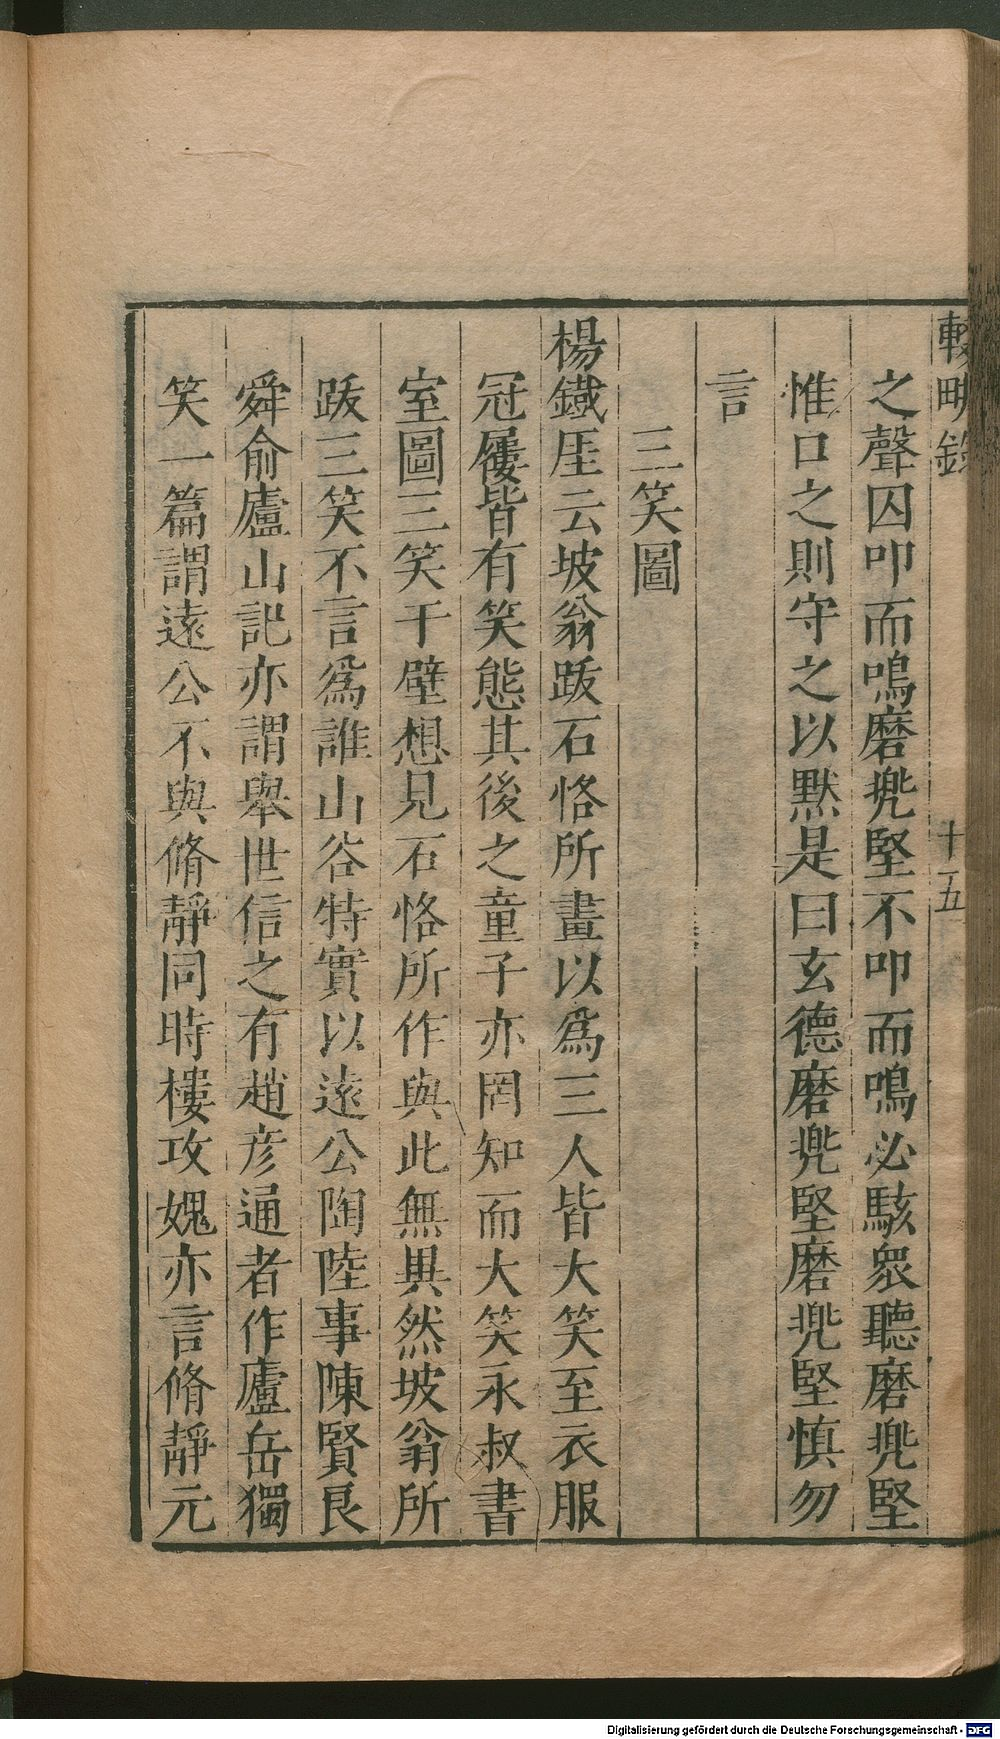 輟畊錄 十五
之聲囚叩而鳴磨兠堅不叩而鳴必駭衆聽磨兠堅
惟口之則守之以默是曰玄德磨兠堅磨兠堅慎勿
言
三笑圖
楊鐵厓云坡翁跋石恪所畫以爲三人皆大笑至衣服
冠屨皆有笑態其後之童子亦罔知而大笑永叔書
室圖三笑于壁想見石恪所作與此無異然坡翁所
跋三笑不言爲誰山谷特實以遠公陶陸事陳賢良
舜俞廬山記亦謂舉世信之有趙彦通者作廬岳獨
笑一篇謂遠公不與脩靜同時樓攻媿亦言脩靜元
Digitalisierung gefördert durch die Deutsche Forschungsgemeinschaft - DFG